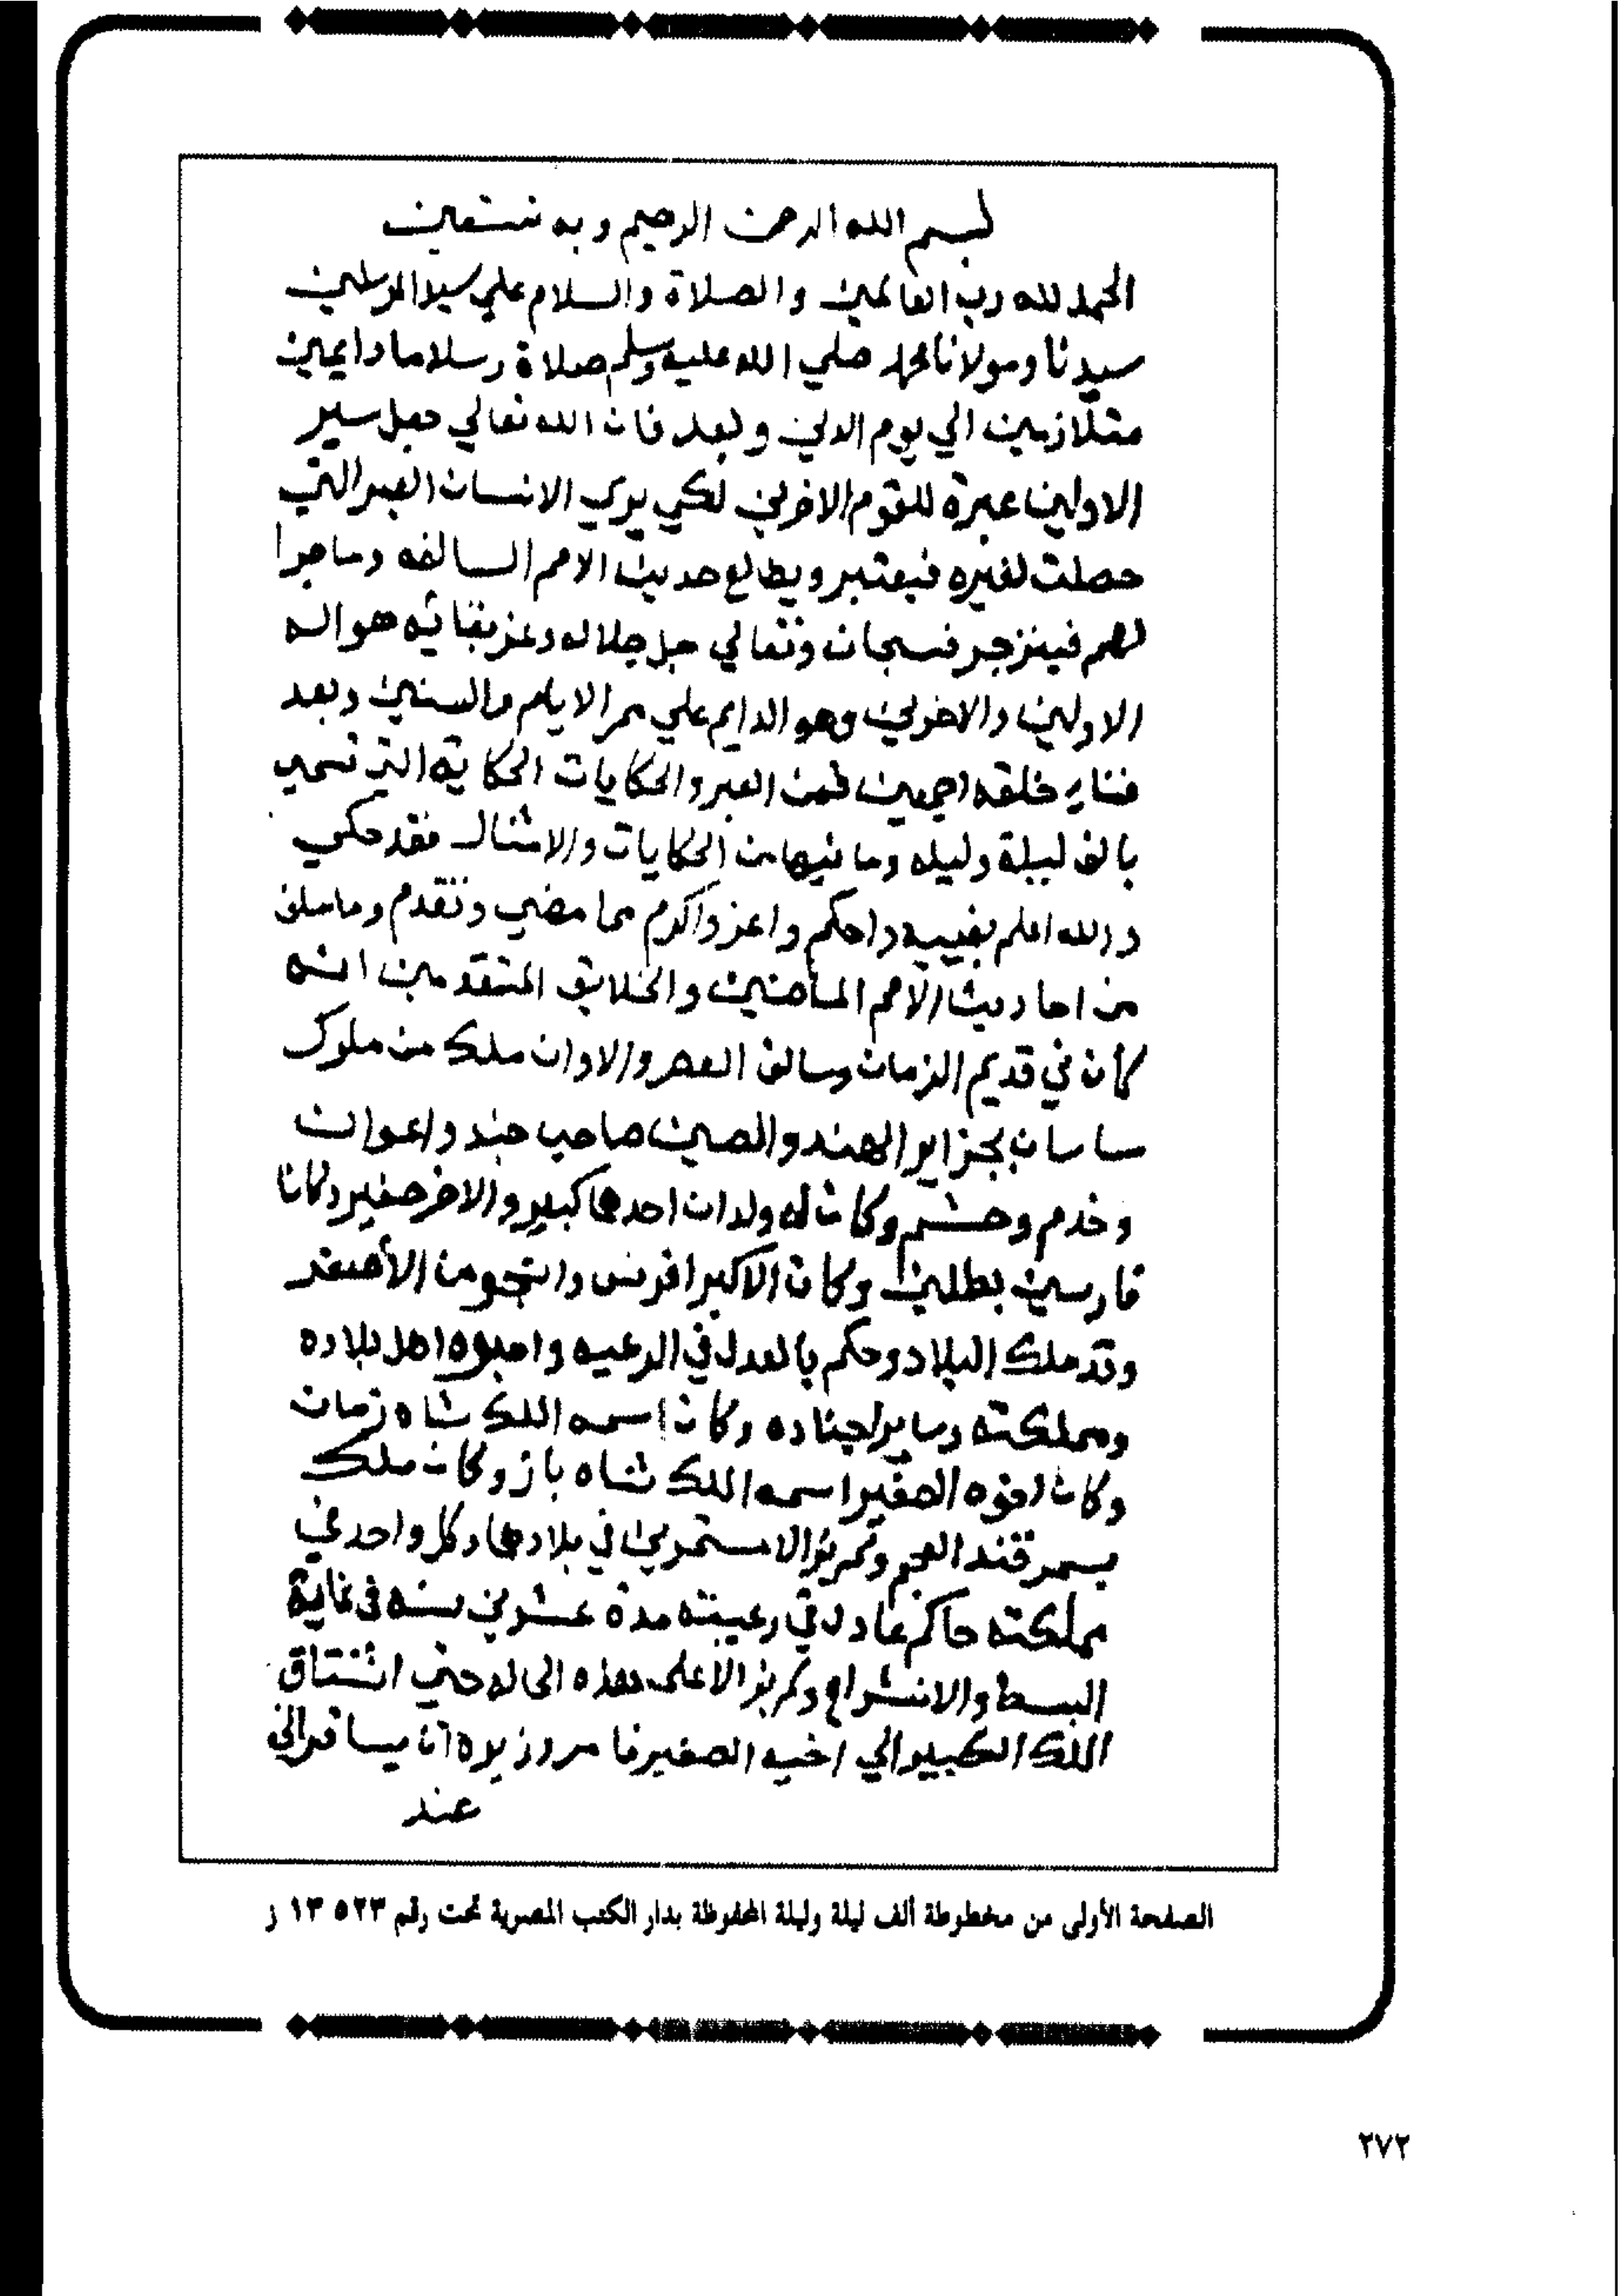 بسم الله الرحمن الرحيم وبه نستعين
الحمد لله رب العالمين والصلاة والسلام علي سيد المرسلين
سيدنا ومولانا محمد صلي الله عليه وسلم صلاة وسلاما دايمين
متلازمين الي يوم الدين وبعد فان الله تعالي جعل سير
الاولين عبرة للقوم الاخرين لكي يري الانسان العبر التي
حصلت لغيره فيعتبر ويطالع حديث الامم السالفه وما جرا
لهم فينزجر فسبحان وتعالي جل جلاله وعز بقائه هو اله
الاولين والاخرين وهو الدايم علي ممر الايام والسنين وبعد
فناء خلقه اجمعين فمن العبر والحكايات الحكاية التي تسمي
بالف ليلة وليله وما فيها من الحكايات والامثال فقد حكي
والله اعلم بغيبه واحكم واعز واكرم مما مضي وتقدم وما سلف
من احاديث الامم الماضيين والخلايق المتقدمين انه
كان في قديم الزمان وسالف العصر والاوان ملك من ملوك
ساسان بجزاير الهند والصين صاحب جند واعوان
وخدم وحشم وكان له ولدان احدهما كبير والاخر صغير وكانا
فارسين بطلين وكان الاكبر افرس واشجو من الأصغر
وقد ملك البلاد وحكم بالعدل في الرعيه واحبوه اهل بلاده
ومملكته وساير اجناده وكان اسمه الملك شاه زمان
وكان اخوه الصغير اسمه الملك شاه باز وكان ملك
بسمرقند العجم ولم يزالا مستمرين في بلادهما وكل واحد في
مملكته حاكم عادل في رعيته مدة عشرين سنه في غاية
البسط والانشراح ولم يزالا علي هذه الحاله حتي اشتاق
الملك الكبير الي اخيه الصغير فامر وزيره ان يسافر الي
عند
الصفحة الأولى من مخطوطة ألف ليلة وليلة المحفوظة بدار الكتب المصرية تحت رقم ١٣٥٢٣ ز
٢٧٢